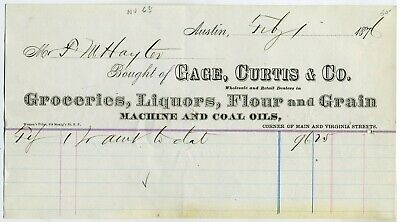 NV 65
Austin, Feby 1 1876
Mr F M Hayter
Bought of GAGE, CURTIS & CO.
Wholesale and Retail Dealers in
Groceries, Liquors, Flour and Grain
MACHINE AND COAL OILS,
CORNER OF MAIN AND VIRGINIA STREETS.
Feby 1 To amt to dat 96 25